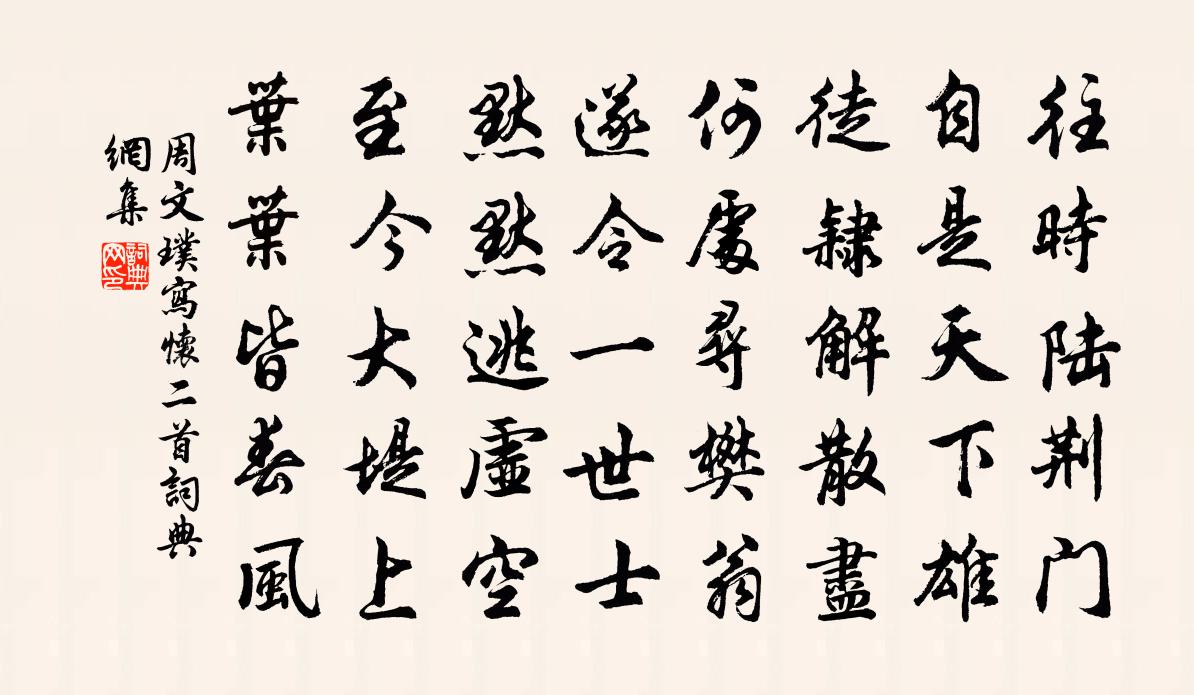 往時陆荆门
自是天下雄
徒隸解散盡
何處尋樊翁
遂令一世士
默默逃虛空
至今大堤上
葉葉皆春風
周文璞寫懷二首詞典
網集
詞典網印